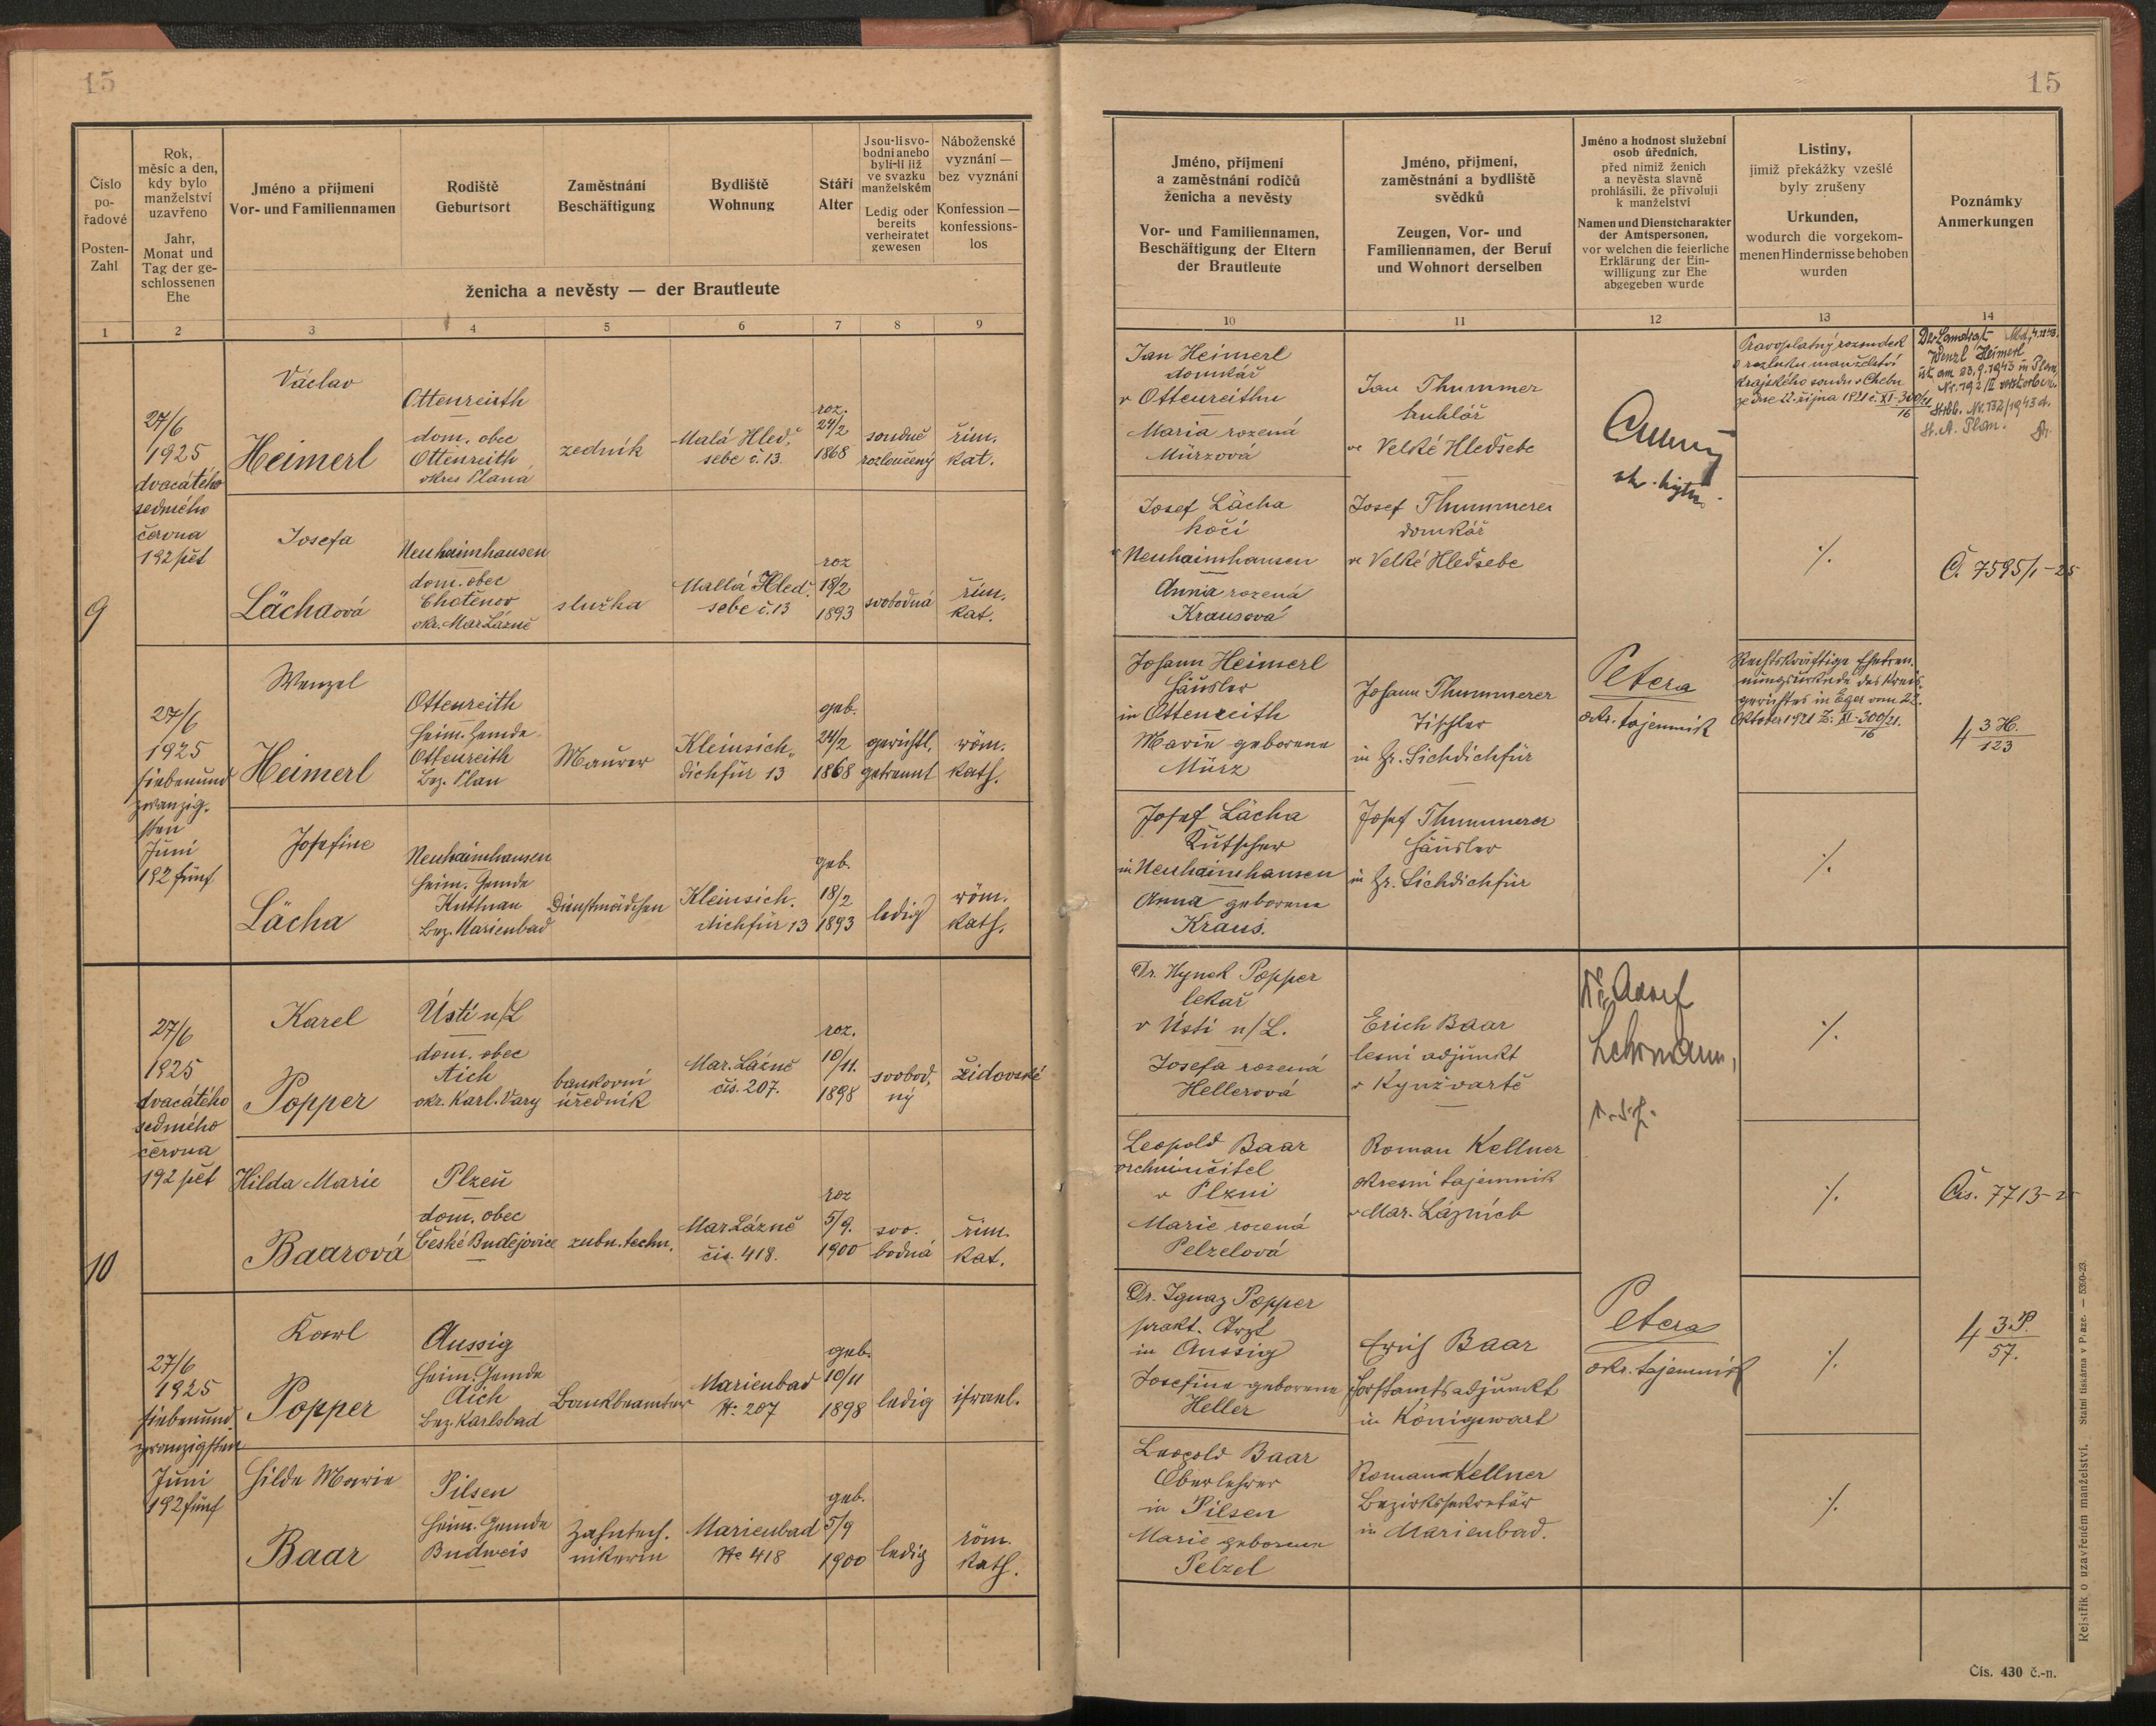 15
15
Číslo
po-
řadové
Posten-
Zahl
Rok,
měsíc a den,
kdy bylo
manželství
uzavřeno
Jahr,
Monat und
Tag der ge-
schlossenen
Ehe
Jméno a příjmení
Vor- und Familiennamen
Rodiště
Geburtsort
Zaměstnání
Beschäftigung
Bydliště
Wohnung
Stáří
Alter
Jsou-li svo-
bodni anebo
byli-li již
ve svazku
manželském
Ledig oder
bereits
verheiratet
gewesen
Náboženské
vyznání —
bez vyznání
Konfession —
konfessions-
los
ženicha a nevěsty — der Brautleute
1 2 3 4 5 6 7 8 9
Jméno, příjmení
a zaměstnání rodičů
ženicha a nevěsty
Vor- und Familiennamen,
Beschäftigung der Eltern
der Brautleute
Jméno, příjmení,
zaměstnání a bydliště
svědků
Zeugen, Vor- und
Familiennamen, der Beruf
und Wohnort derselben
Jméno a hodnost služební
osob úředních,
před nimiž ženich
a nevěsta slavně
prohlásili, že přivolují
k manželství
Namen und Dienstcharakter
der Amtspersonen,
vor welchen die feierliche
Erklärung der Ein-
willigung zur Ehe
abgegeben wurde
Listiny,
jimiž překážky vzešlé
byly zrušeny
Urkunden,
wodurch die vorgekom-
menen Hindernisse behoben
wurden
Poznámky
Anmerkungen
10 11 12 13 14
9
27/6
1925
dvacátého
sedmého
června
192 pět
Václav
Heimerl
Ottenreith
dom. obec
Ottenreith
okres Planá
zedník
Malá Hleď-
sebe č. 13.
roz.
24/2
1868
soudně
rozloučený
řím.
kat.
Josefa
Lächaová
Neuhaimhausen
dom. obec
Chotěnov
okr. Mar. Lázně
služka
Mallá Hleď-
sebe č. 13
roz
18/2
1893
svobodná
řím.
kat.
27/6
1925
siebenund
zwanzig-
sten
Juni
192 fünf
Wenzel
Heimerl
Ottenreith
heim. Gemde
Ottenreith
Bez. Plan
Maurer
Kleinsich-
dichfür 13
geb.
24/2
1868
gerichtl.
getrennt
röm.
kath.
Josefine
Lächa
Neuhaimhausen
heim. Gemde
Kuttnau
Bez. Marienbad
Dienstmädchen
Kleinsich-
dichfür 13
geb.
18/2
1893
ledig
röm.
kath.
10
27/6
1925
dvacátého
sedmého
června
192 pět
Karel
Popper
Ústí n/L
dom. obec
Aich
okr. Karl. Vary
bankovní
úředník
Mar. Lázně
čís. 207.
roz.
10/11.
1898
svobod-
ný
židovské
Hilda Marie
Baarová
Plzeň
dom. obec
České Budějovice
zubn. techn.
Mar Lázně
čís. 418.
roz
5/9.
1900
svo-
bodná
řím.
kat.
27/6
1925
siebenund
zwanzigsten
Juni
192 fünf
Karl
Popper
Aussig
heim. Gemde
Aich
Bez. Karlsbad
Bankbeamter
Marienbad
№ 207
geb.
10/11
1898
ledig
israel.
Hilde Marie
Baar
Pilsen
heim. Gemde
Budweis
Zahntech-
nikerin
Marienbad
№ 418
geb.
5/9
1900
ledig
röm.
kath.
Jan Heimerl
domkář
v Ottenreithu
Maria rozená
Mürzová
Jan Thummer
truhlář
ve Velké Hleďsebe
Pravoplatný rozsudek
o rozluku manželství
krajského soudu v Chebu
ze dne 22. října 1921 č. XI-300/21
16
Der Landrat
Wenzl Heimerl
ist am 23.9.1943 in Plan,
Nr. 192/II verstorben.
Strbb. Nr. 132/1943 d.
St. A. Plan.
Josef Lächa
kočí
v Neuhaimhausen
Anna rozená
Krausová
Josef Thummerer
domkář
ve Velké Hleďsebe
·/.
Č. 7595/1-25
Johann Heimerl
Häusler
in Ottenreith
Marie geborene
Mürz
Johann Thummerer
Tischler
in Gr. Sichdichfür
Petera
okr. tajemník
Rechtskräftige Ehetren-
nungsurkunde des Kreis-
gerichtes in Eger vom 22.
Oktober 1921 Z: XI-300/21.
16
4 3 H.
123
Josef Lächa
Kutscher
in Neuhaimhausen
Anna geborene
Kraus.
Josef Thummerer
Häusler
in Gr. Sichdichfür
·/.
Dr. Hynek Popper
lekař
v Ústí n/L.
Josefa rozená
Hellerová
Erich Baar
lesní adjunkt
v Kynžvartě
·/.
Leopold Baar
vrchní učitel
v Plzni
Marie rozená
Pelzelová
Roman Kellner
okresní tajemník
v Mar. Lázních
·/.
Čís. 7713-2
Dr. Ignaz Popper
prakt. Arzt
in Aussig
Josefine geborene
Heller
Erich Baar
Forstamtsadjunkt
in Königswart
Petera
okr. tajemník
·/.
4 3 P.
57.
Leopold Baar
Oberlehrer
in Pilsen
Marie geborene
Pelzel
Roman Kellner
Bezirkssekretär
in Marienbad.
·/.
Rejstřík o uzavřeném manželství. Státní tiskárna v Praze. — 5350-23.
Čís. 430 č.-n.